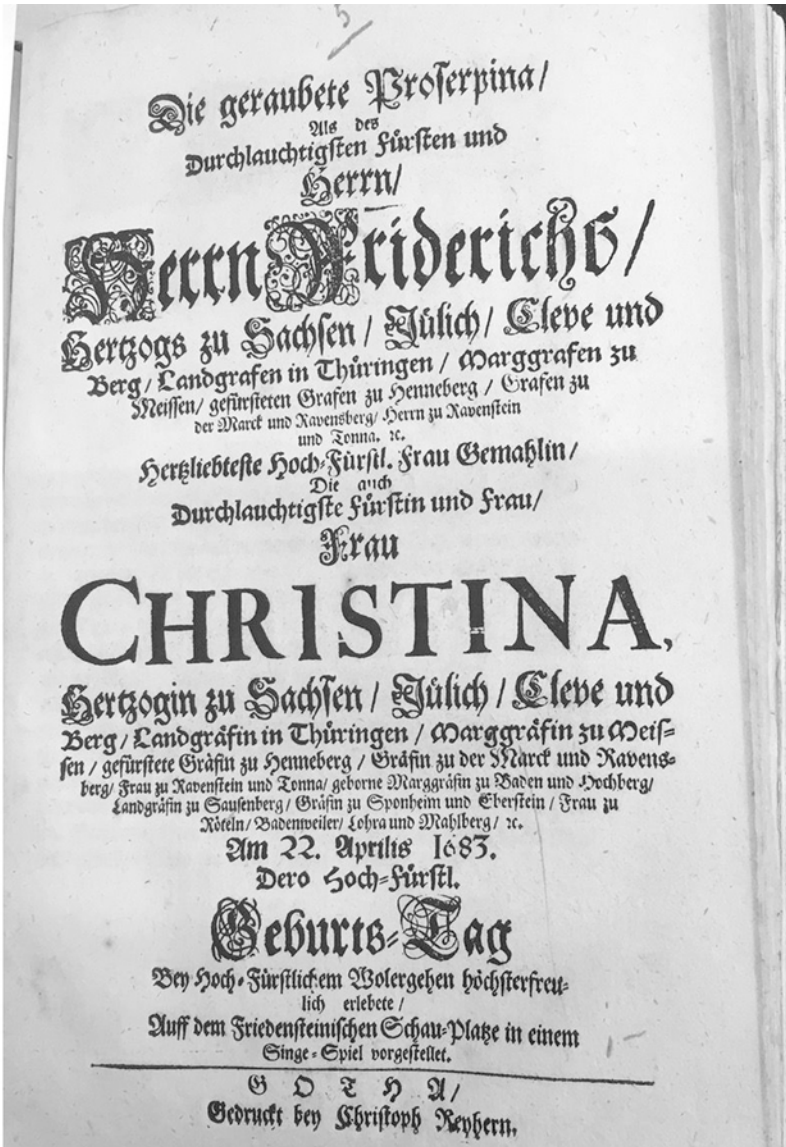 5
Die geraubete Proserpina/
Als des
Durchlauchtigsten Fürsten und
Herrn/
Herrn Friderichs/
Hertzogs zu Sachsen / Jülich/ Cleve und
Berg/ Landgrafen in Thüringen / Marggrafen zu
Meissen/ gefürsteten Grafen zu Henneberg / Grafen zu
der Marck und Ravensberg/ Herrn zu Ravenstein
und Tonna. ꝛc.
Hertzliebteste Hoch-Fürstl. Frau Gemahlin/
Die auch
Durchlauchtigste Fürstin und Frau/
Frau
CHRISTINA,
Hertzogin zu Sachsen / Jülich / Cleve und
Berg/ Landgräfin in Thüringen / Marggräfin zu Meis-
sen / gefürstete Gräfin zu Henneberg / Gräfin zu der Marck und Ravens-
berg/ Frau zu Ravenstein und Tonna/ geborne Marggräfin zu Baden und Hochberg/
Landgräfin zu Sausenberg/ Gräfin zu Sponheim und Eberstein / Frau zu
Röteln/ Badenweiler/ Lohra und Mahlberg/ ꝛc.
Am 22. Aprilis 1683.
Dero Hoch-Fürstl.
Geburts-Tag
Bey Hoch-Fürstlichem Wolergehen höchsterfreu-
lich erlebete /
Auff dem Friedensteinischen Schau-Platze in einem
Singe-Spiel vorgestellet.
GOTHA/
Gedruckt bey Christoph Reyhern.